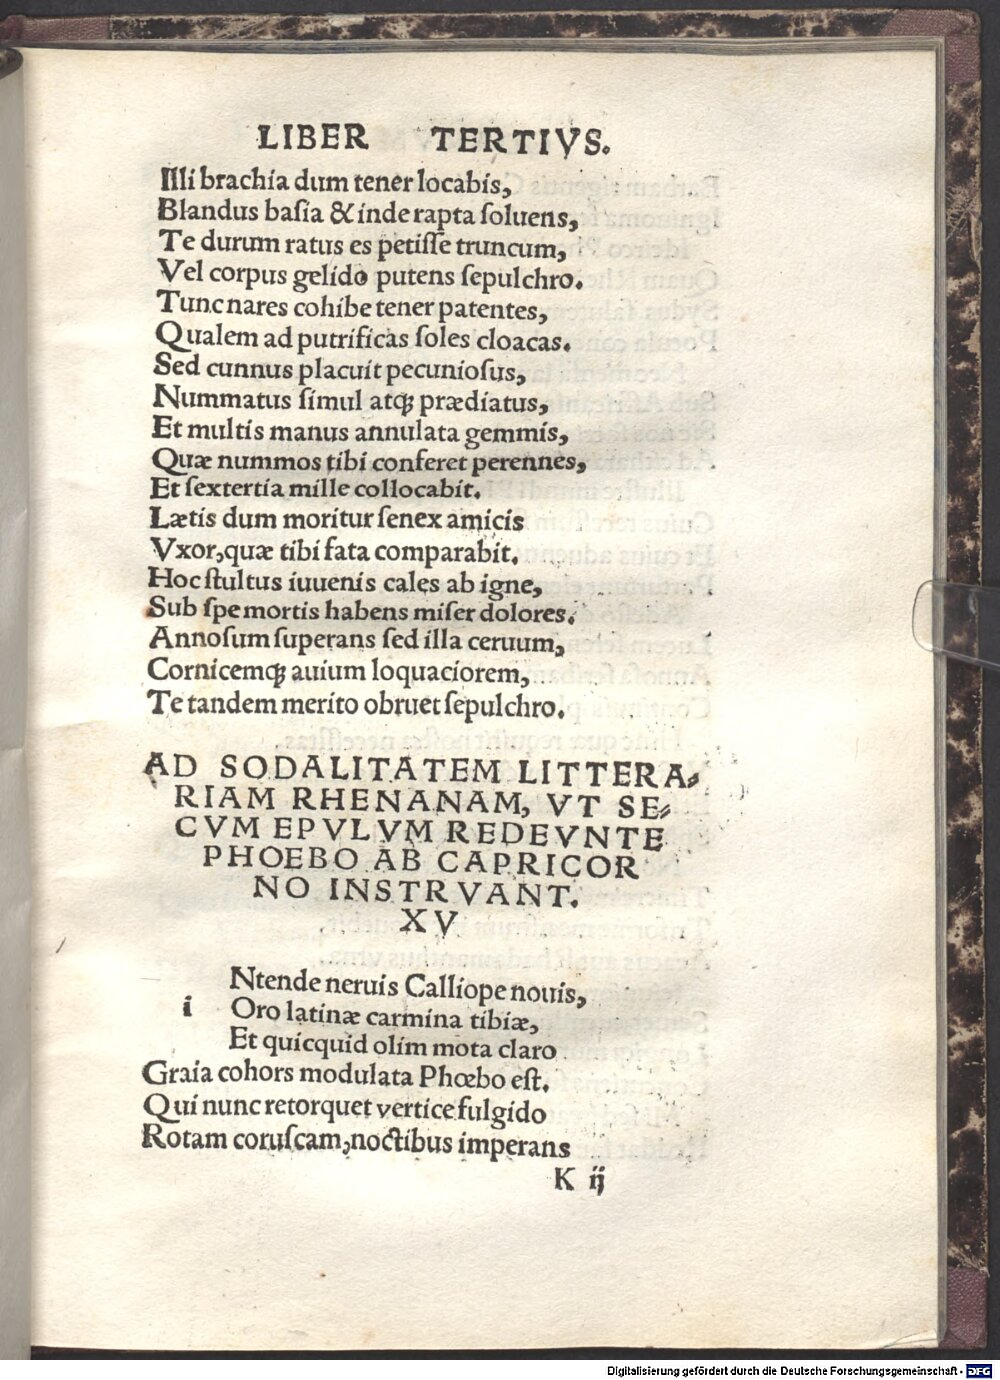 LIBER TERTIVS.
Illi brachia dum tener locabis,
Blandus basia & inde rapta soluens,
Te durum ratus es petisse truncum,
Vel corpus gelido putens sepulchro.
Tunc nares cohibe tener patentes,
Qualem ad putrificas soles cloacas.
Sed cunnus placuit pecuniosus,
Nummatus simul atqꝫ prædiatus,
Et multis manus annulata gemmis,
Quæ nummos tibi conferet perennes,
Et sextertia mille collocabit.
Lætis dum moritur senex amicis
Vxor, quæ tibi fata comparabit.
Hoc stultus iuuenis cales ab igne,
Sub spe mortis habens miser dolores.
Annosum superans sed illa ceruum,
Cornicemqꝫ auium loquaciorem,
Te tandem merito obruet sepulchro.
AD SODALITATEM LITTERA⸗
RIAM RHENANAM, VT SE⸗
CVM EPVLVM REDEVNTE
PHOEBO AB CAPRICOR
NO INSTRVANT.
XV
Ntende neruis Calliope nouis,
i Oro latinæ carmina tibiæ,
Et quicquid olim mota claro
Graia cohors modulata Phœbo est.
Qui nunc retorquet vertice fulgido
Rotam coruscam, noctibus imperans
K ij
Digitalisierung gefördert durch die Deutsche Forschungsgemeinschaft - DFG